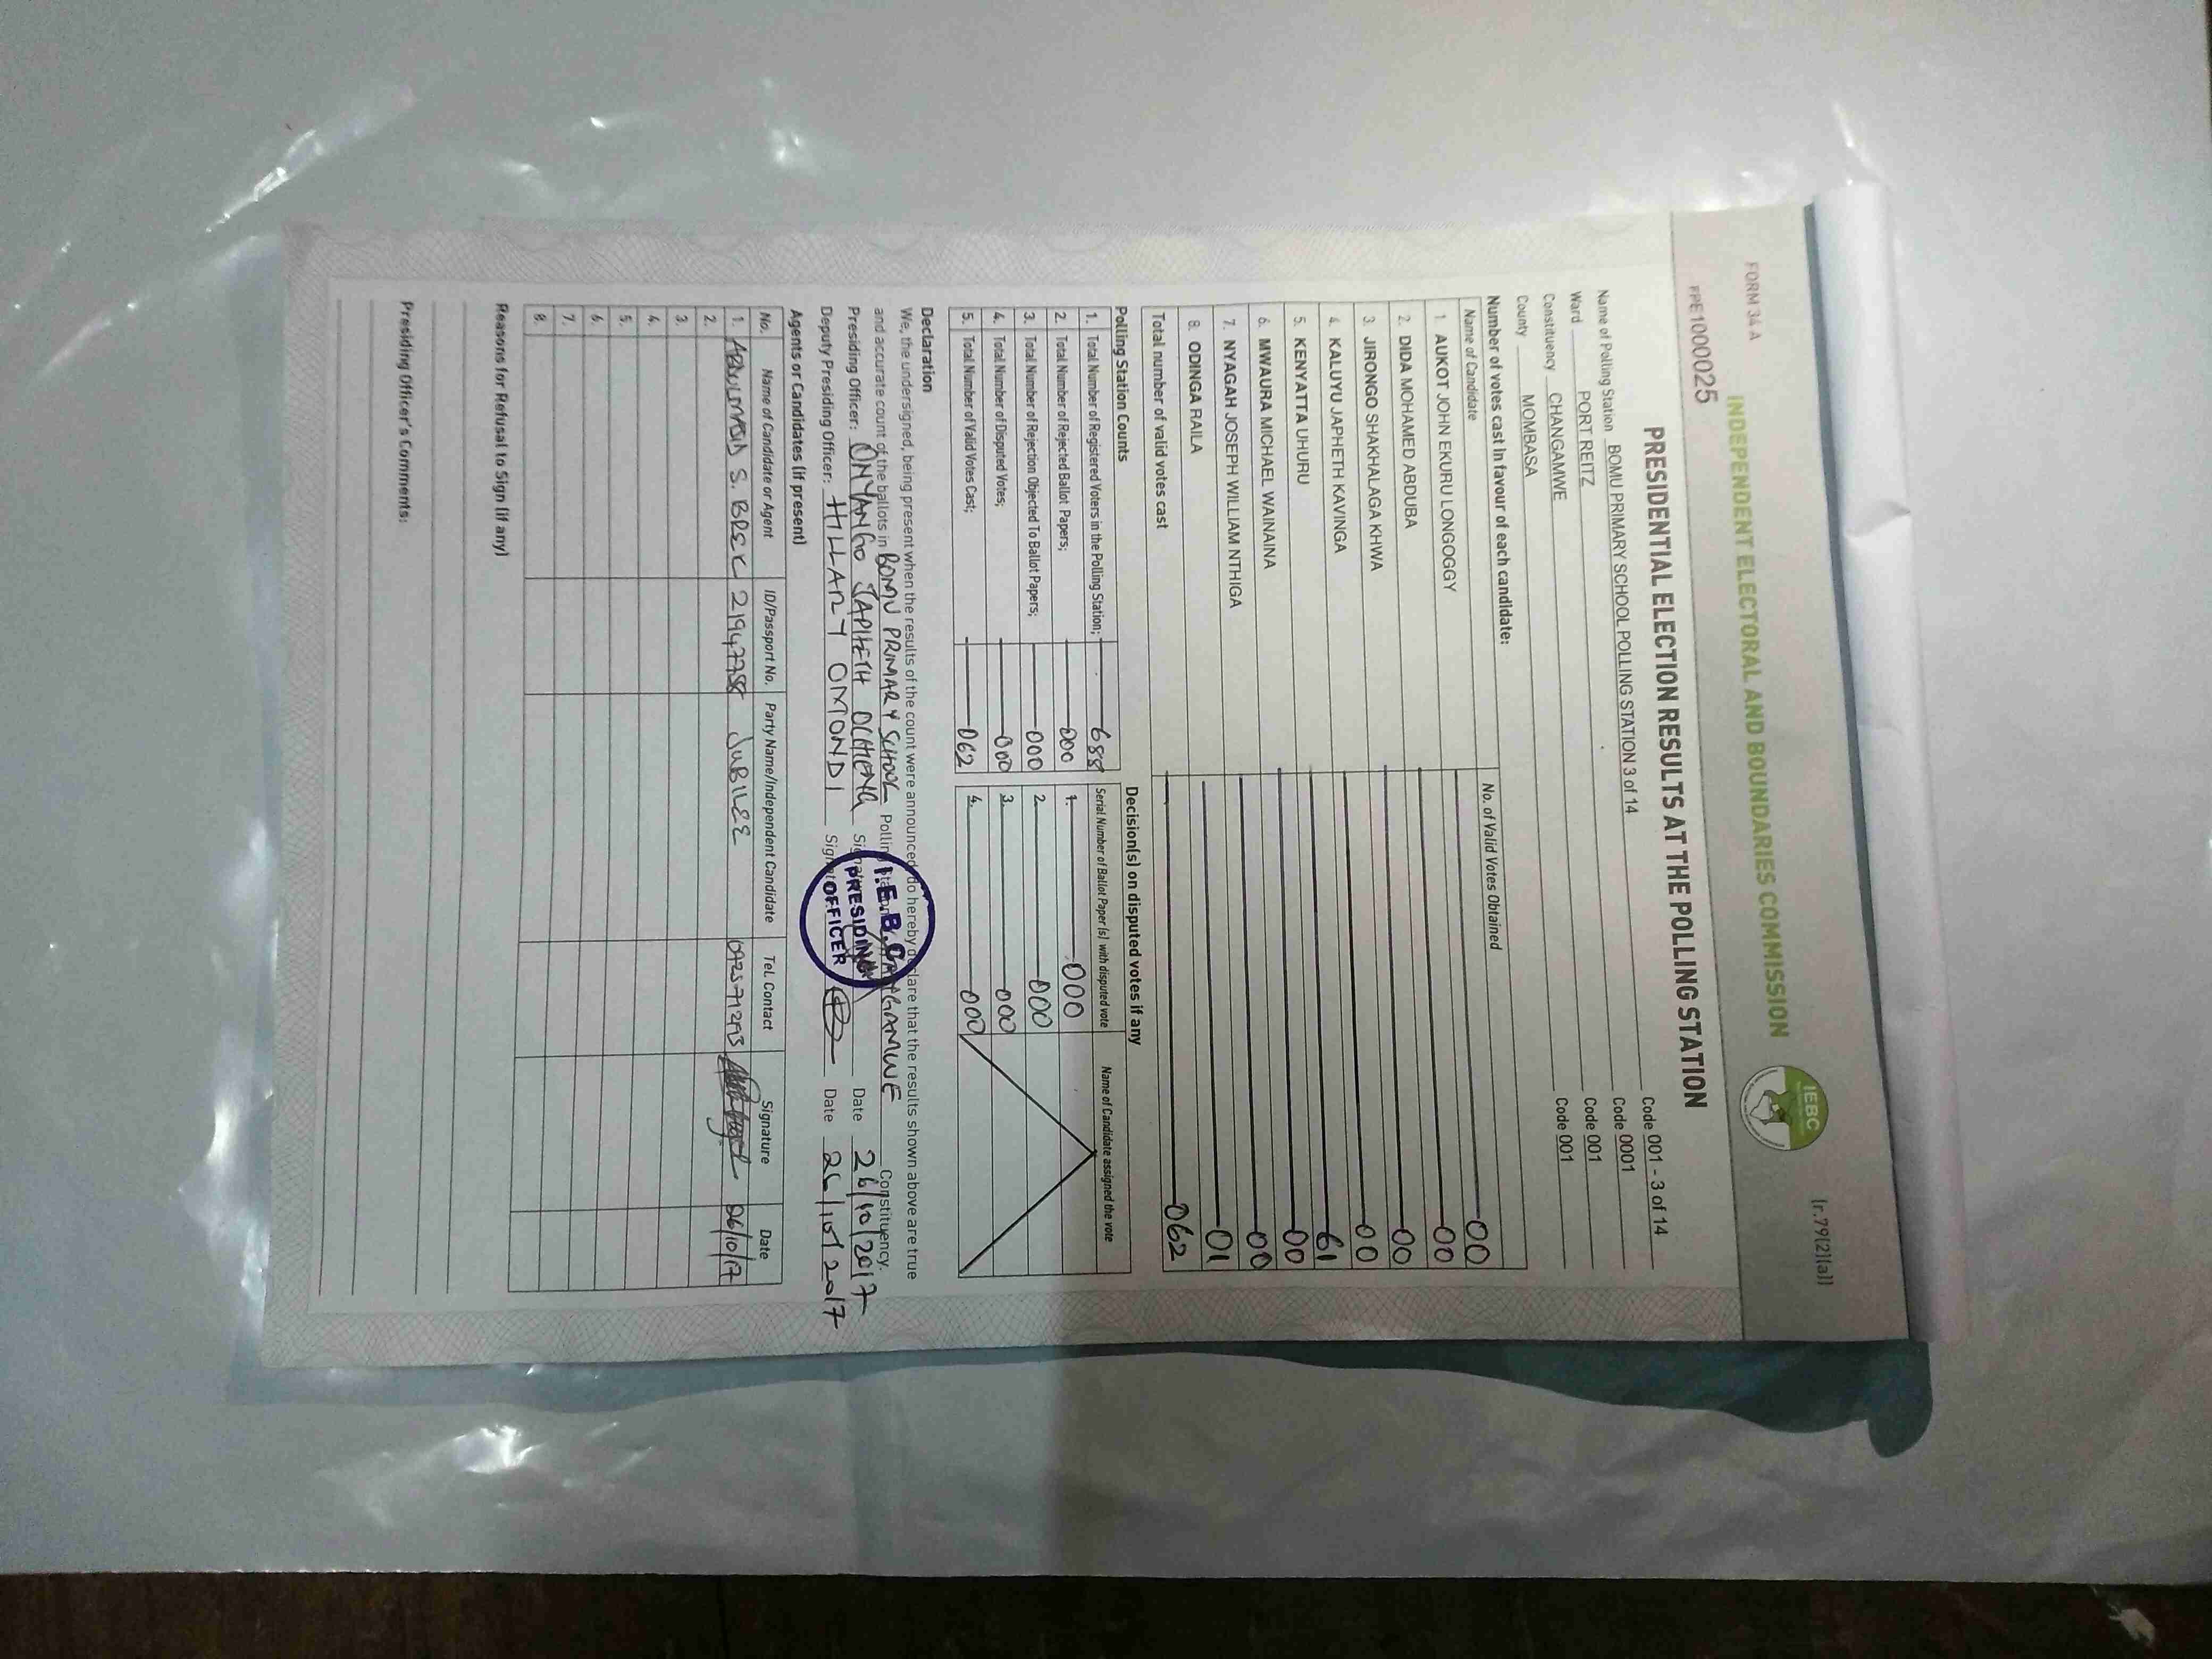 FORM 34 A
[r.79(2)(a)]
INDEPENDENT ELECTORAL AND BOUNDARIES COMMISSION
IEBC
FPE10000025
PRESIDENTIAL ELECTION RESULTS AT THE POLLING STATION
Name of Polling Station BOMU PRIMARY SCHOOL POLLING STATION 3 of 14 Code 001 - 3 of 14
Ward PORT REITZ Code 0001
Constituency CHANGAMWE Code 001
County MOMBASA Code 001
Number of votes cast in favour of each candidate:
Name of Candidate No. of Valid Votes Obtained
1. AUKOT JOHN EKURU LONGOGGY 00
2. DIDA MOHAMED ABDUBA 00
3. JIRONGO SHAKHALAGA KHWA 00
4. KALUYU JAPHETH KAVINGA 00
5. KENYATTA UHURU 61
6. MWAURA MICHAEL WAINAINA 00
7. NYAGAH JOSEPH WILLIAM NTHIGA 00
8. ODINGA RAILA 01
Total number of valid votes cast 062
Polling Station Counts Decision(s) on disputed votes if any
1. Total Number of Registered Voters in the Polling Station; 688 Serial Number of Ballot Paper (s) with disputed vote Name of Candidate assigned the vote
2. Total Number of Rejected Ballot Papers; 000 1. 000
3. Total Number of Rejection Objected To Ballot Papers; 000 2. 000
4. Total Number of Disputed Votes; 000 3. 000
5. Total Number of Valid Votes Cast; 062 4. 000
Declaration
We, the undersigned, being present when the results of the count were announced, do hereby declare that the results shown above are true
and accurate count of the ballots in BOMU PRIMARY SCHOOL Polling Station CHANGAMWE Constituency.
Presiding Officer: ONYANGO JAPHETH OCHIENG Signature Date 26/10/2017
Deputy Presiding Officer: HILLARY OMONDI Signature Date 26/10/2017
I.E.B.C
PRESIDING
OFFICER
Agents or Candidates (if present)
No. Name of Candidate or Agent ID/Passport No. Party Name/Independent Candidate Tel. Contact Signature Date
1. S. BREC 21947758 JUBILEE 26/10/17
2.
3.
4.
5.
6.
7.
8.
Reasons for Refusal to Sign (if any)
Presiding Officer's Comments: